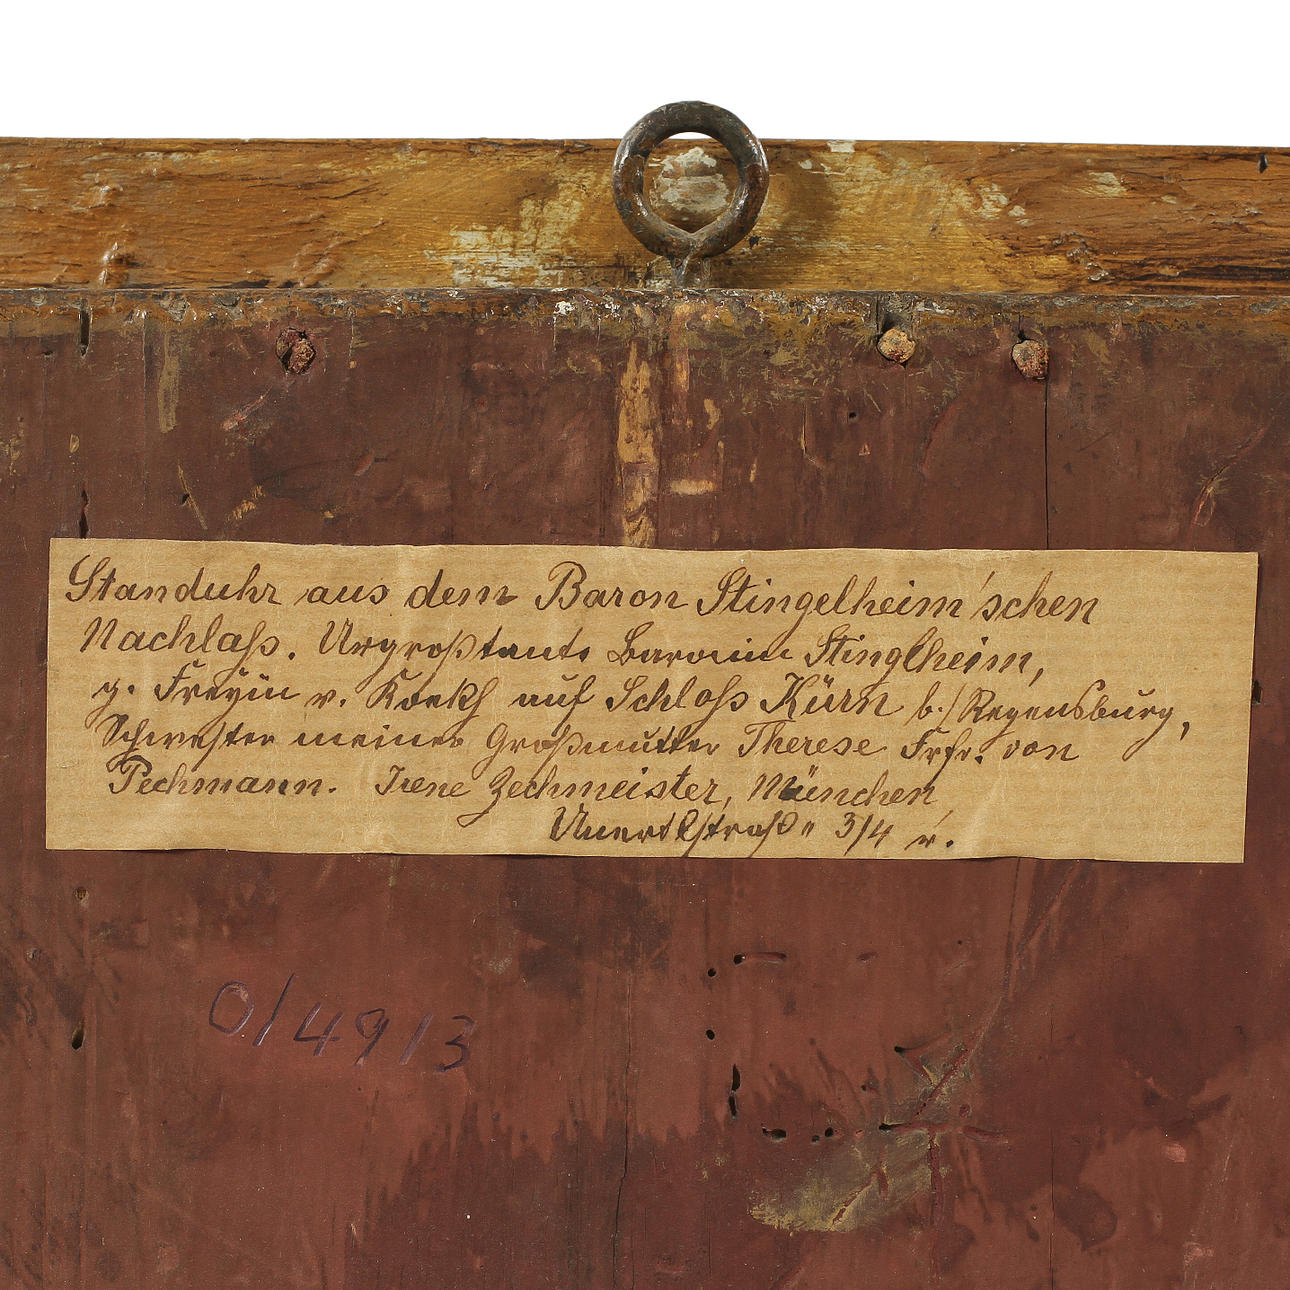 Standuhr aus dem Baron Stingelheim'schen
Nachlaß. Urgroßtante Baronin Stinglheim,
g. Freyin v. auf Schloß Kürn b./Regensburg,
Schwester meiner Großmutter Therese Frfr. von
Pechmann. Irene Zechmeister, München
3/4 r.
0/4913